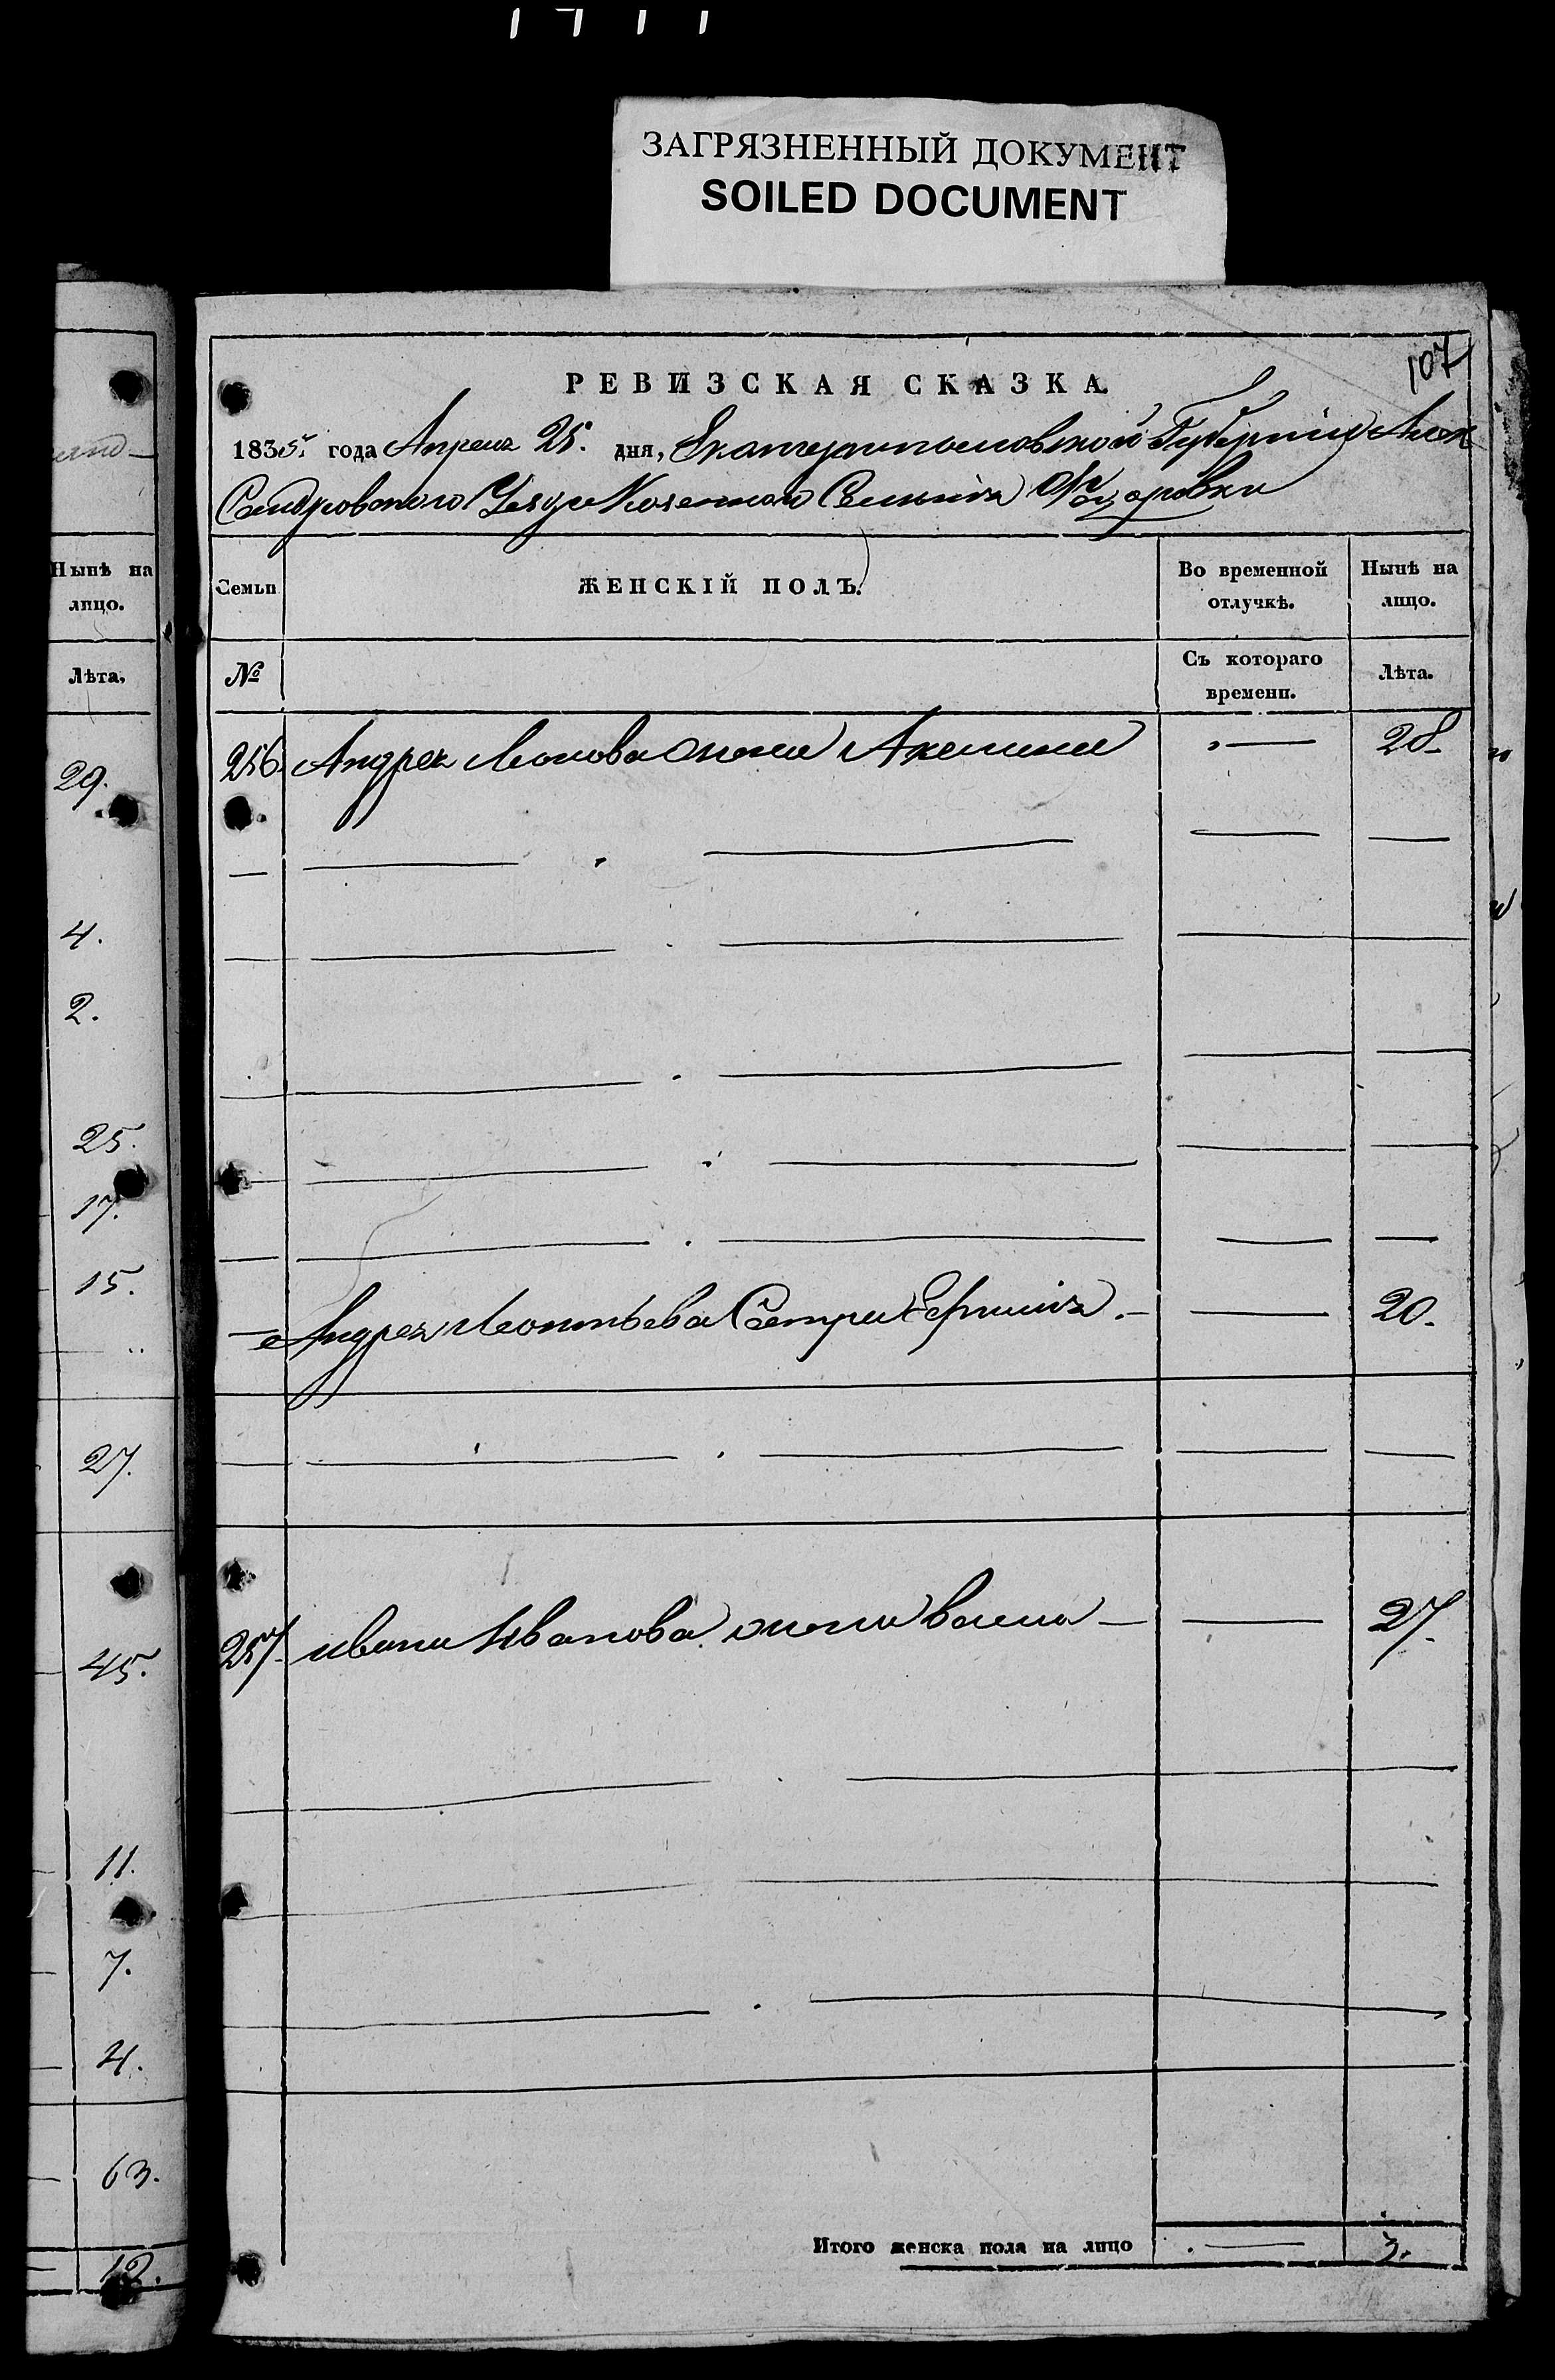 ЗАГРЯЗНЕННЫЙ ДОКУМЕНТ
SOILED DOCUMENT
107
РЕВИЗСКАЯ СКАЗКА.
1835 года Апреля 25. дня, Екатеринославской Губернiи Алек
Сандровскаго Уезда Казеннаго Селенiя
Нынѣ на
лицо.
Семьи
ЖЕНСКІЙ ПОЛЪ.
Во временной
отлучкѣ.
Нынѣ на
лицо.
Лѣта.
№
Съ котораго
времени.
Лѣта.
256. Андрея жена Акелина 28
29.
4.
2.
25.
17.
15.
Андрея Леонтьева Сестра 20.
27.
257 ивана Иванова жена 27.
45.
11.
7.
4.
63.
Итого женска пола на лицо 3.
12.